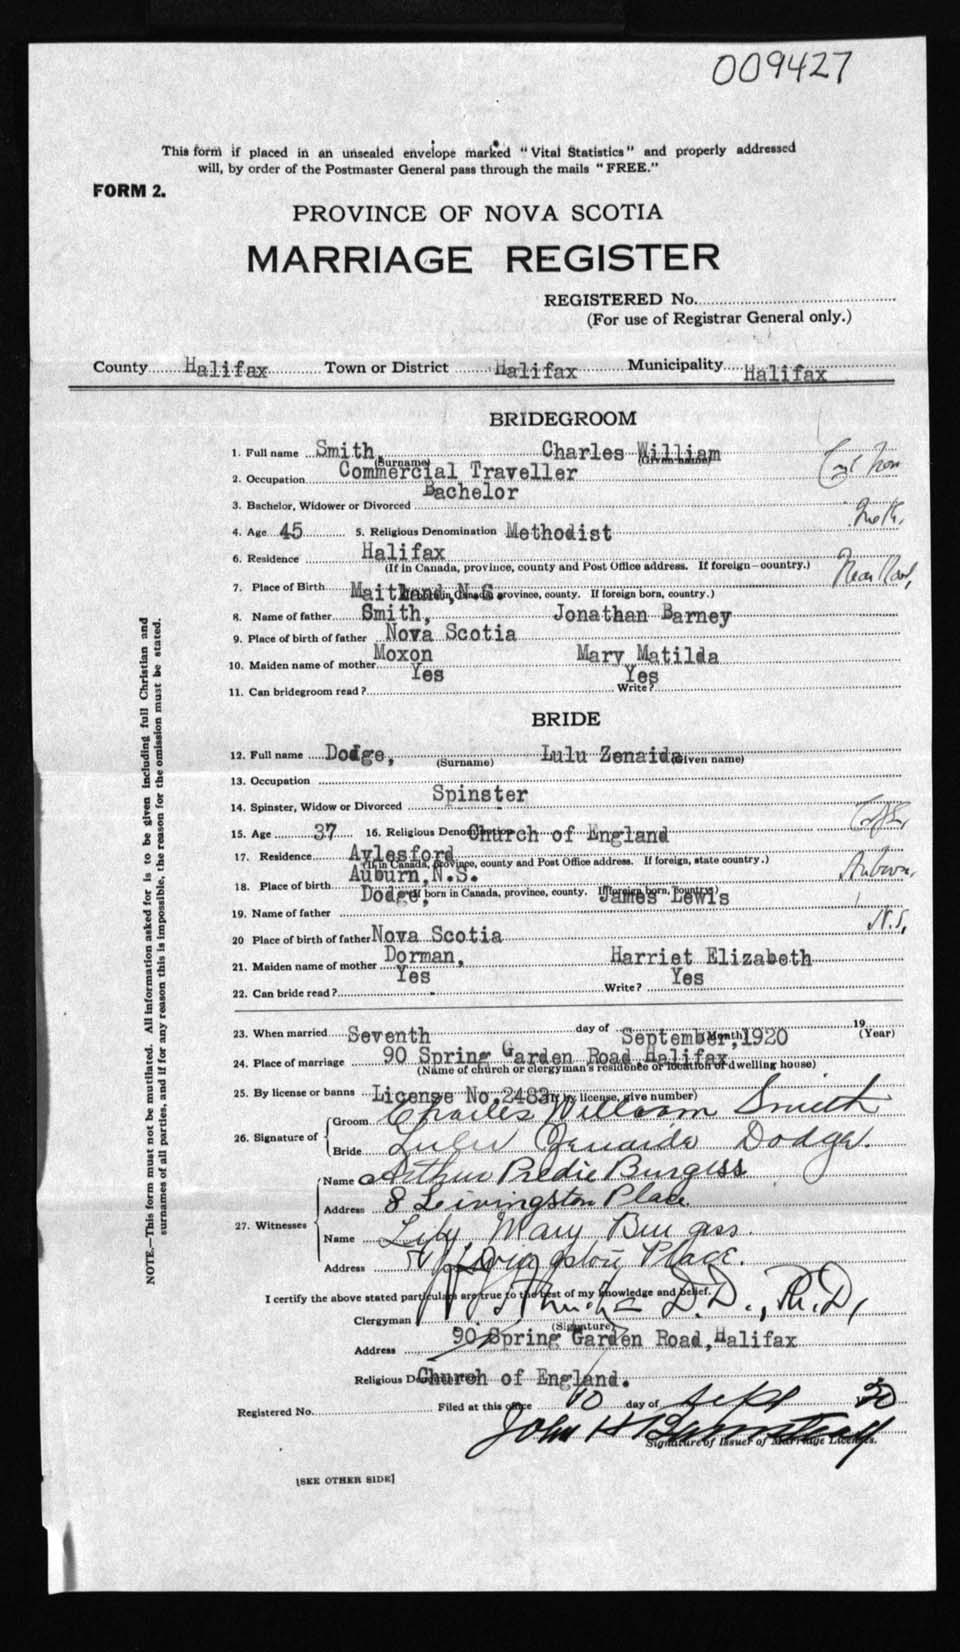 009427
This form if placed in an unsealed envelope marked "Vital Statistics" and properly addressed
will, by order of the Postmaster General pass through the mails "FREE."
FORM 2.
PROVINCE OF NOVA SCOTIA
MARRIAGE REGISTER
REGISTERED No.
(For use of Registrar General only.)
County Halifax Town or District Halifax Municipality Halifax
BRIDEGROOM
1. Full name Smith, Charles William
(Surname) (Given name)
2. Occupation Commercial Traveller
3. Bachelor, Widower or Divorced Bachelor
4. Age 45 5. Religious Denomination Methodist Meth.
6. Residence Halifax
(If in Canada, province, county and Post Office address. If foreign—country.)
7. Place of Birth Maitland, N.S.
province, county. If foreign born, country.)
8. Name of father Smith, Jonathan Barney
9. Place of birth of father Nova Scotia
10. Maiden name of mother Moxon Mary Matilda
11. Can bridegroom read? Yes Write? Yes
BRIDE
12. Full name Dodge, Lulu Zenaida
(Surname) (Given name)
13. Occupation
14. Spinster, Widow or Divorced Spinster
15. Age 37 16. Religious Denomination Church of England
17. Residence Aylesford
(If in Canada, province, county and Post Office address. If foreign, state country.)
18. Place of birth Auburn, N.S. Auburn,
(If born in Canada, province, county. If foreign born, country)
19. Name of father Dodge, James Lewis
N.S,
20 Place of birth of father Nova Scotia
21. Maiden name of mother Dorman, Harriet Elizabeth
22. Can bride read? Yes Write? Yes
23. When married Seventh day of September, 1920 19
(Month) (Year)
24. Place of marriage 90 Spring Garden Road, Halifax
(Name of church or clergyman's residence or location of dwelling house)
25. By license or banns License No. 2483 (If by license, give number)
26. Signature of
Groom Charles William Smith
Bride Lulu Zenaida Dodge.
27. Witnesses
Name Arthur Predie Burgess
Address 8 Livingston Place
Name Lily Mary Burgess.
Address 8 Livingston Place.
I certify the above stated particulars are true to the best of my knowledge and belief.
Clergyman D.D., Ph.D,
(Signature)
Address 90 Spring Garden Road, Halifax
Religious Denomination Church of England.
Registered No. Filed at this office 10 day of Sept 20
John H Barnstead
Signature of Issuer of Marriage Licenses.
[SEE OTHER SIDE]
NOTE.—This form must not be mutilated. All information asked for is to be given including full Christian and
surnames of all parties, and if for any reason this is impossible, the reason for the omission must be stated.